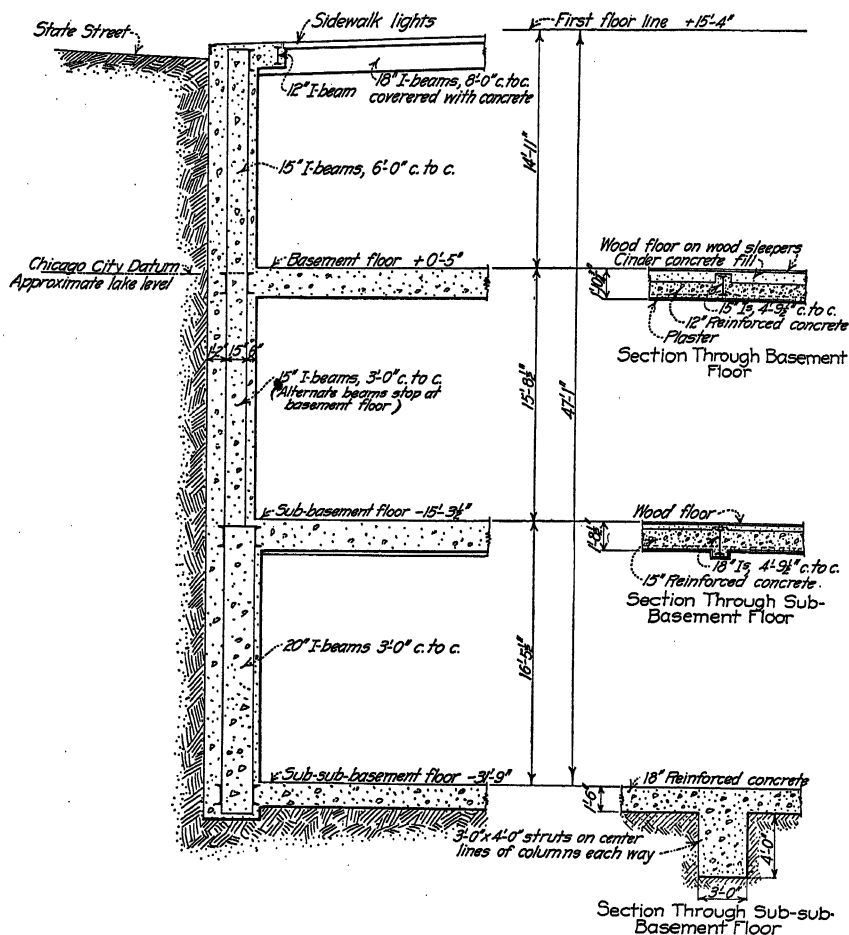 State Street
Sidewalk lights
First floor line +15'-4"
12" I-beam
18" I-beams, 8'-0" c. to c.
coverered with concrete
14'-11"
15" I-beams, 6'-0" c. to c.
Chicago City Datum
Approximate lake level
Basement floor +0'-5"
Wood floor on wood sleepers
Cinder concrete fill
15" Is, 4'-9½" c. to c.
12" Reinforced concrete
Plaster
Section Through Basement
Floor
15" 6"
15" I-beams, 3'-0" c. to c.
(Alternate beams stop at
basement floor)
15'-8½"
47'-1"
Sub-basement floor -15'-3½"
Wood floor
1'-8½"
18" Is, 4'-9½" c. to c.
15" Reinforced concrete.
Section Through Sub-
Basement Floor
20" I-beams 3'-0" c. to c.
16'-5½"
Sub-sub-basement floor -31'-9"
18" Reinforced concrete
1'-6"
3'-0" x 4'-0" struts on center
lines of columns each way
4'-0"
3'-0"
Section Through Sub-sub-
Basement Floor